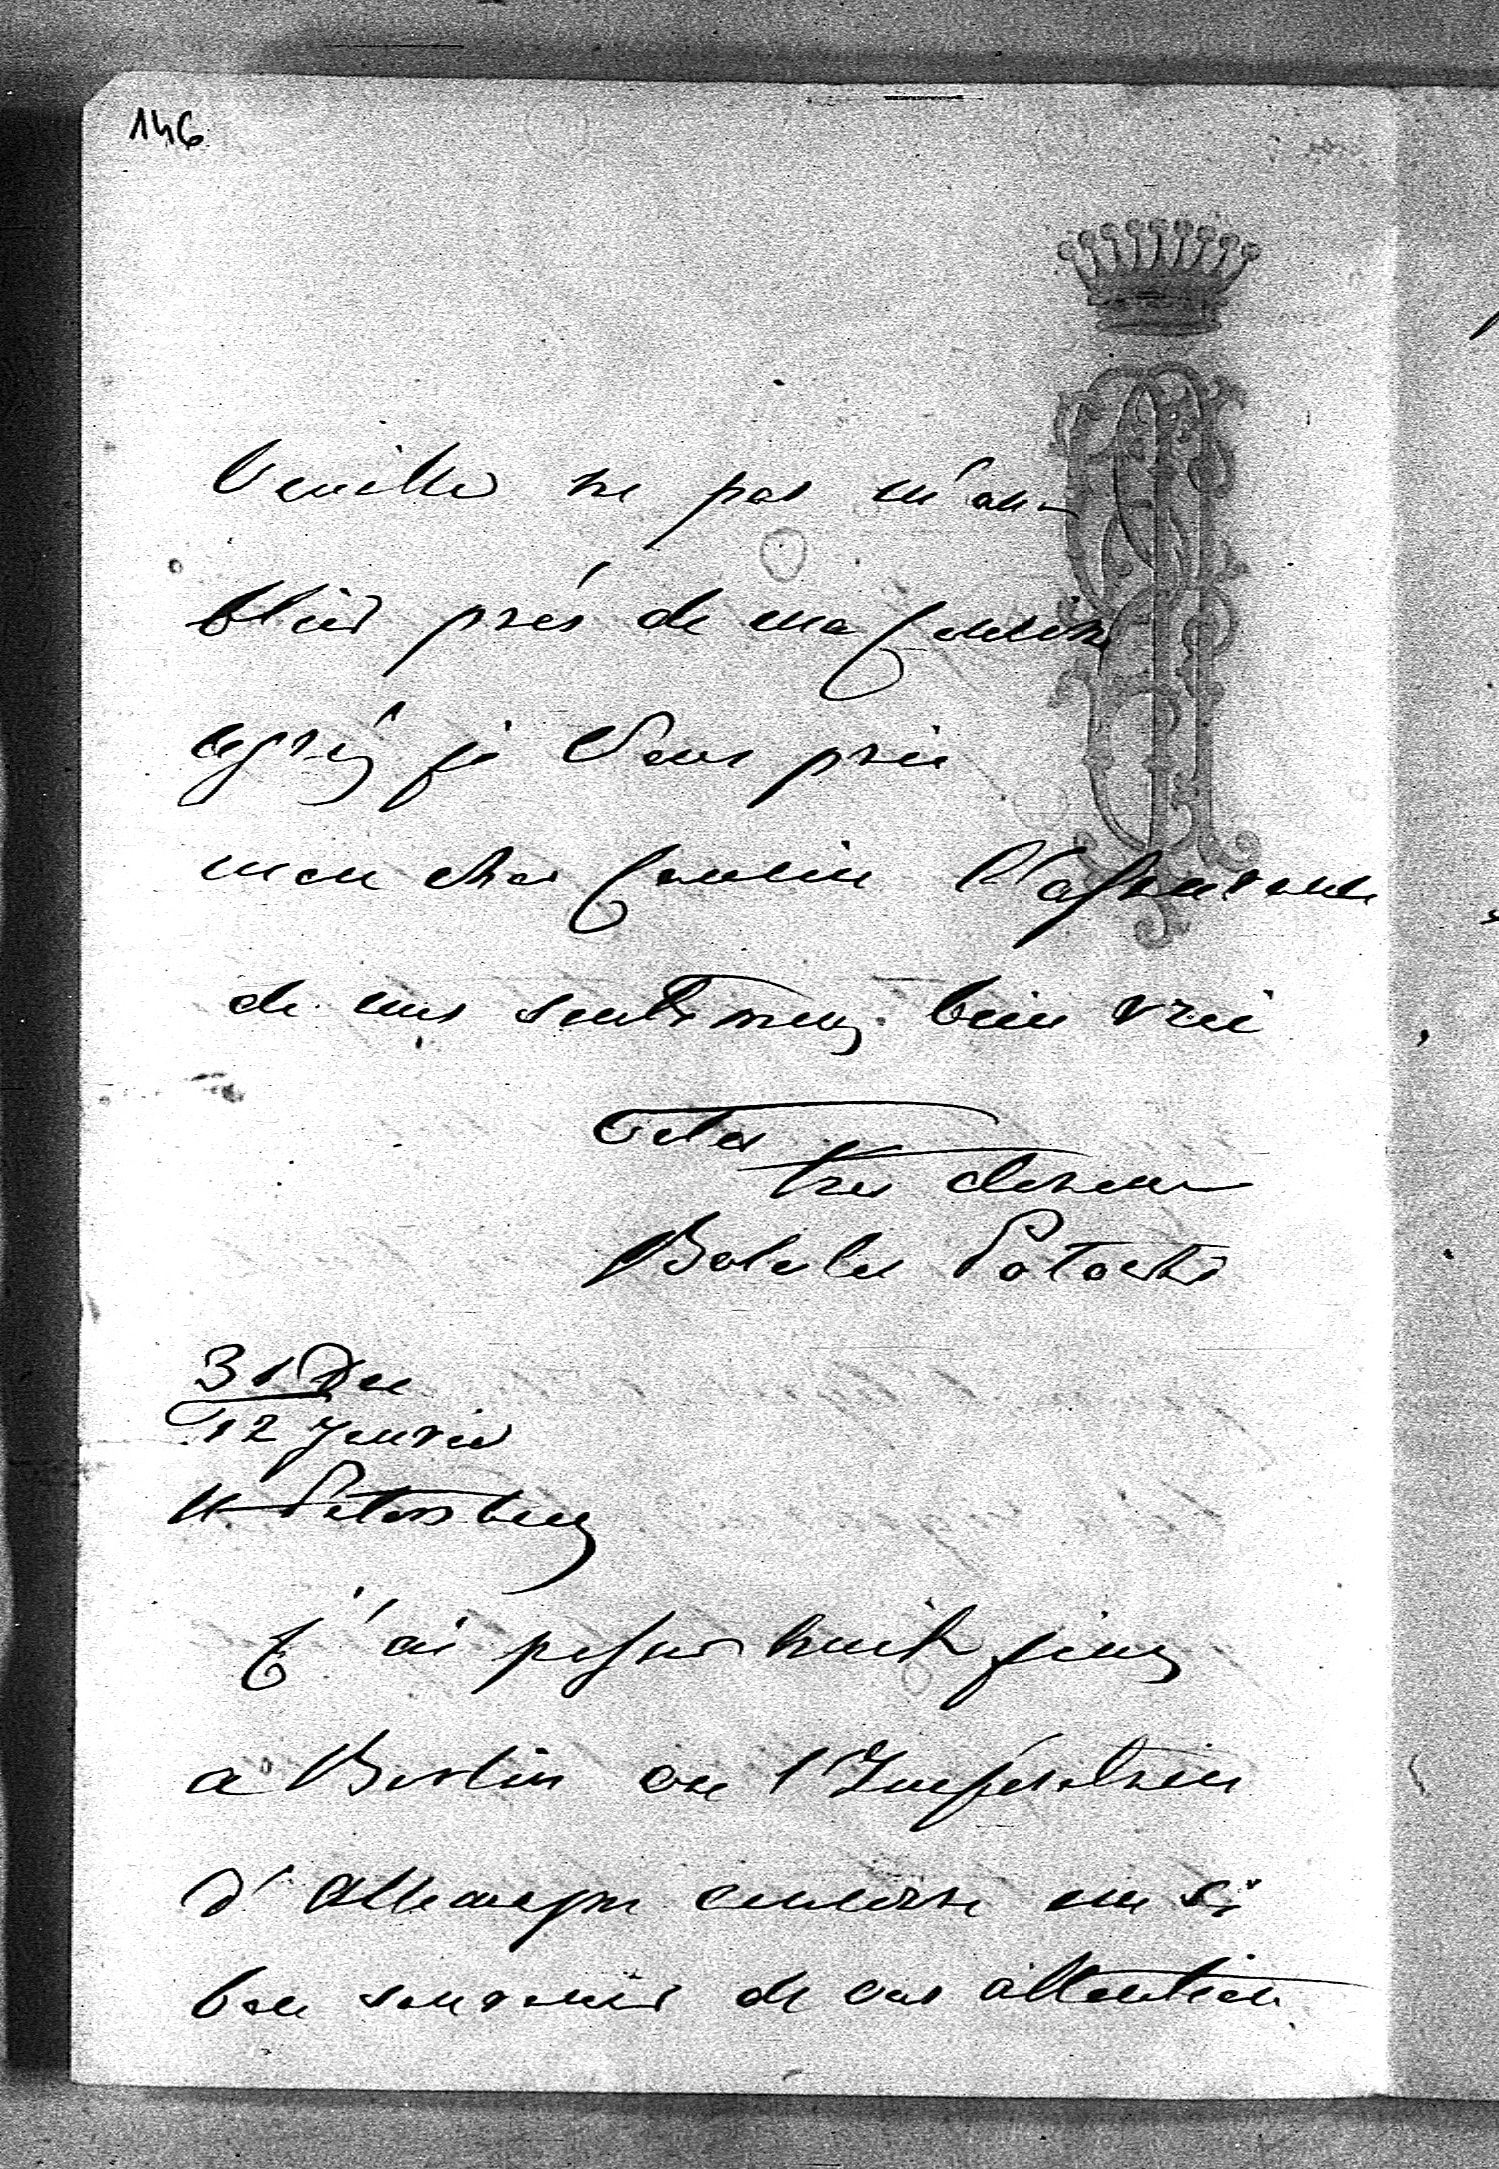 146
Veuillez ne pas m'ou-
blier près de ma Cousine
agréez je Vous prie
mon cher Cousin l'assurance
de mes sentimens bien vrai
Votre
très devoué
Boleslas Potocki
31 Dec
12 Janvier
St Petersburg
J'ai passer huit jours
a Berlin ou l'Impératrice
d'Allemagne conserve un si
bon souvenir de vos attention